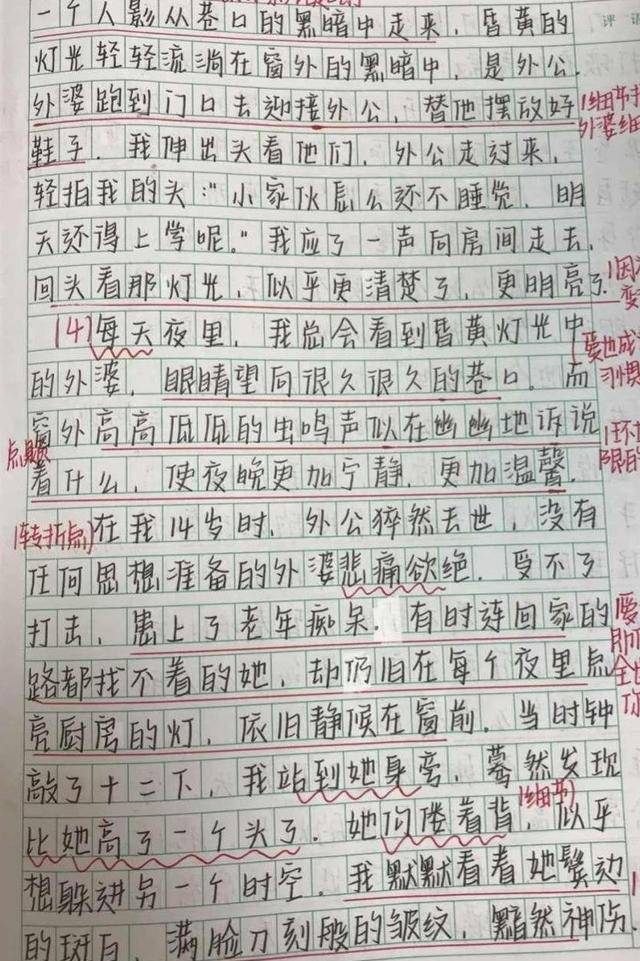 一个人影从巷口的黑暗中走来，昏黄的
灯光轻轻流淌在窗外的黑暗中，是外公．
外婆跑到门口去迎接外公，替他摆放好
鞋子．我伸出头看他们，外公走过来，
轻拍我的头："小家伙怎么还不睡觉．明
天还得上学呢．"我应了一声向房间走去．
回头看那灯光，似乎更清楚了，更明亮了．
(4)每天夜里，我总会看到昏黄灯光中
的外婆，眼睛望向很久很久的巷口．而
窗外高高低低的虫鸣声似在幽幽地诉说
点题
着什么，使夜晚更加宁静，更加温馨．
(转折点)在我14岁时，外公猝然去世，没有
任何思想准备的外婆悲痛欲绝．受不了
打击，患上了老年痴呆．有时连回家的
路都找不着的她，却仍旧在每个夜里点
亮厨房的灯，依旧静候在窗前．当时钟
敲了十二下，我站到她身旁，蓦然发现
比她高了一个头了．她佝偻着背，似乎
(细节)
想躲进另一个时空．我默默看着她鬓边
的斑白，满脸刀刻般的皱纹，黯然神伤．